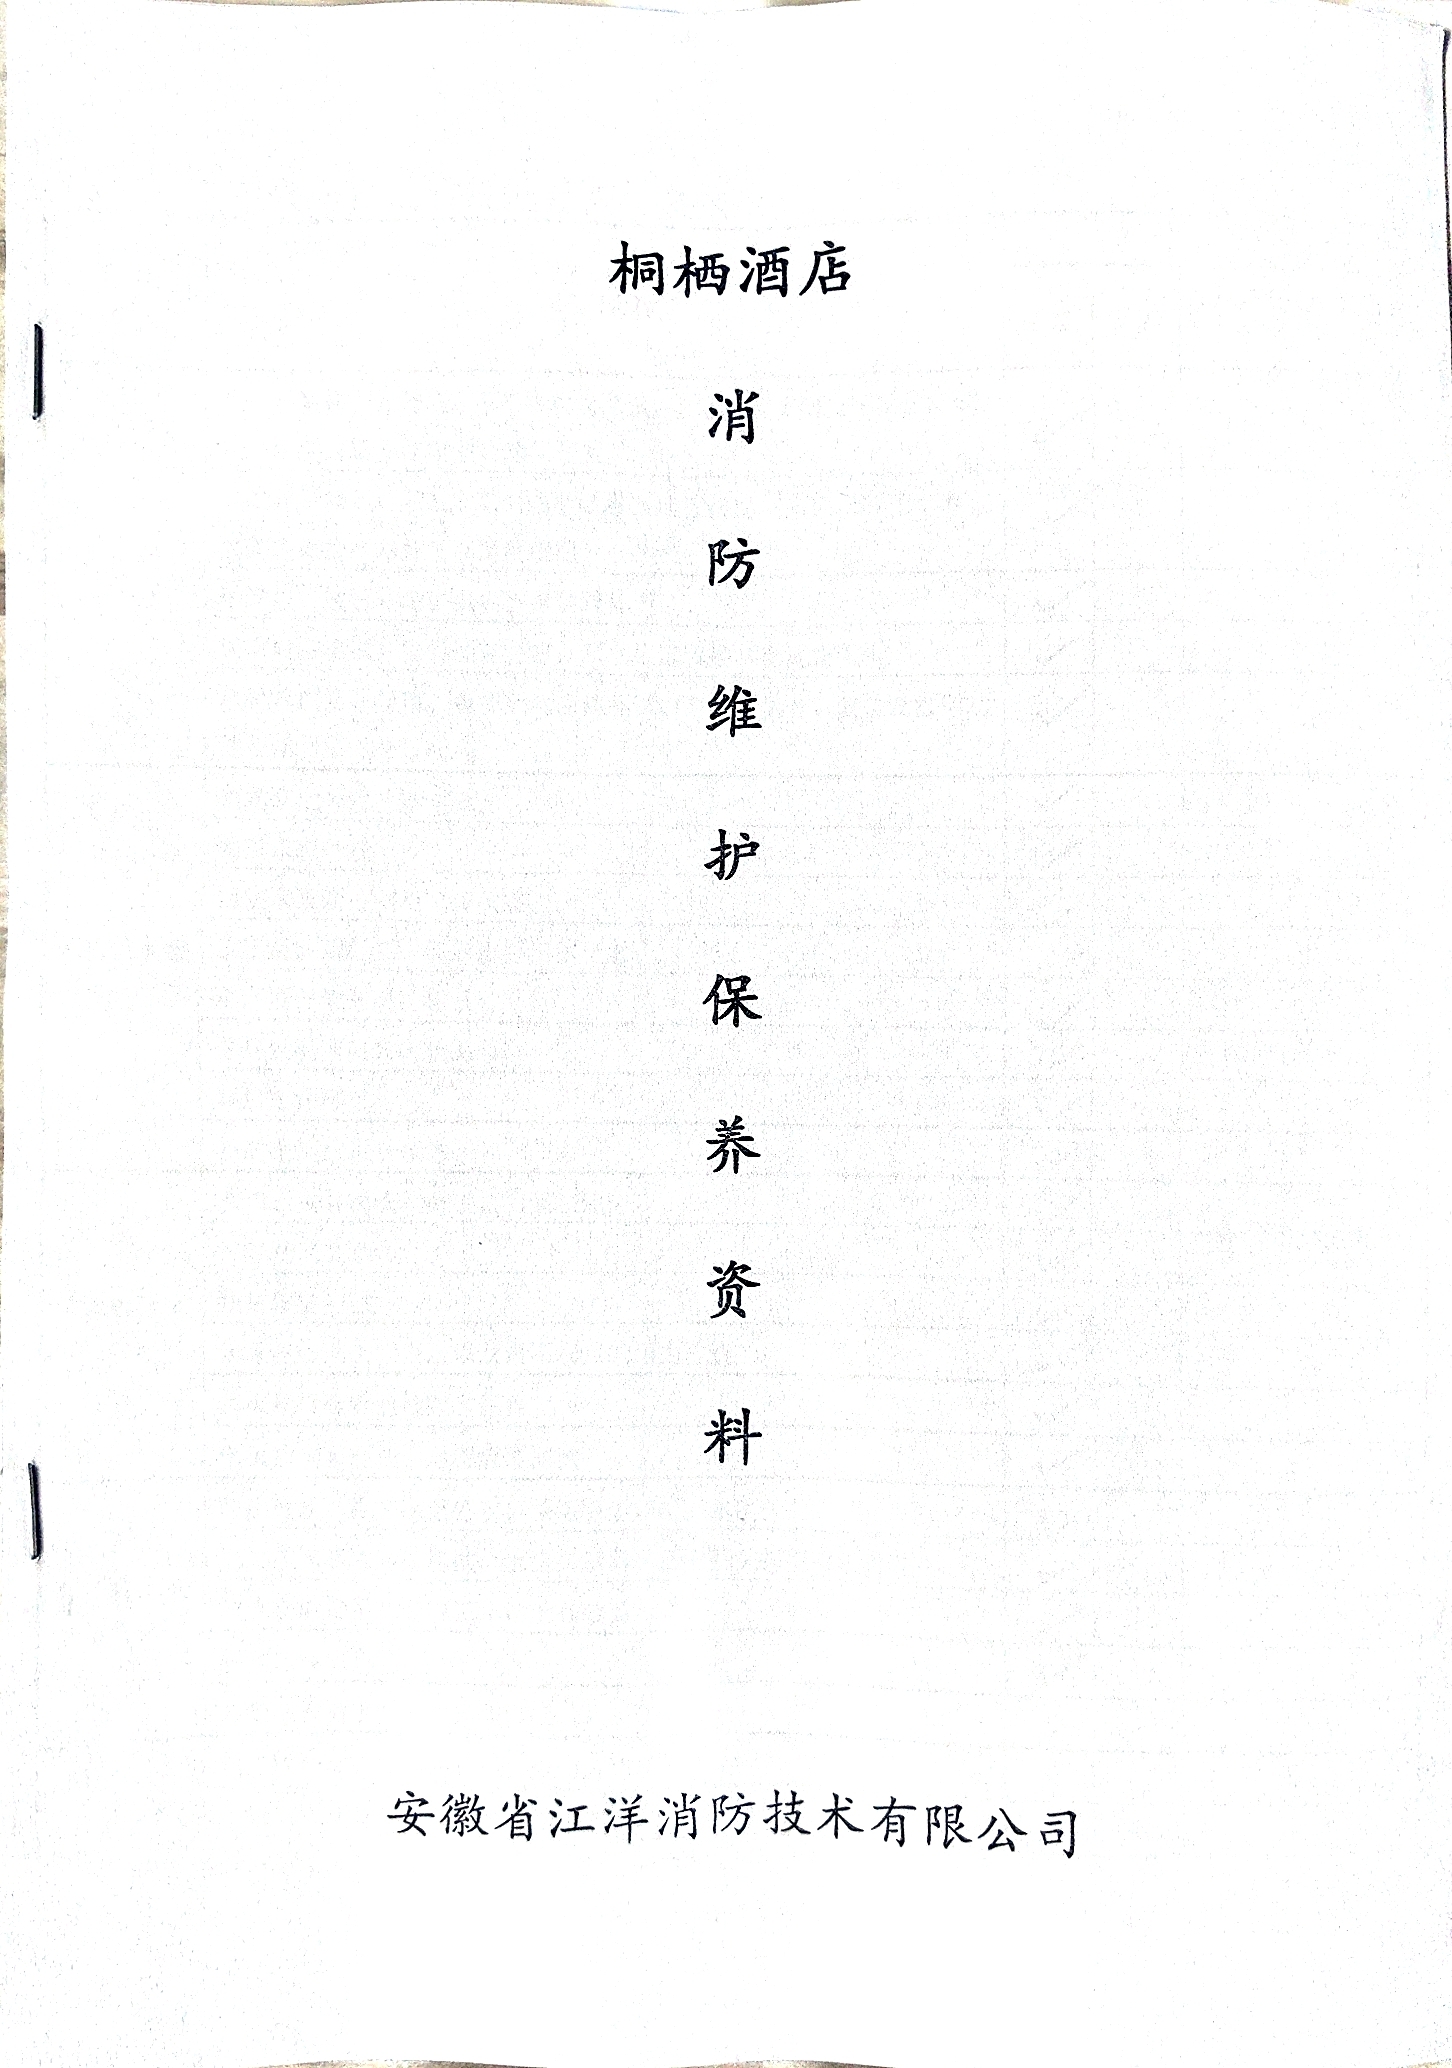 桐栖酒店
消
防
维
护
保
养
资
料
安徽省江洋消防技术有限公司